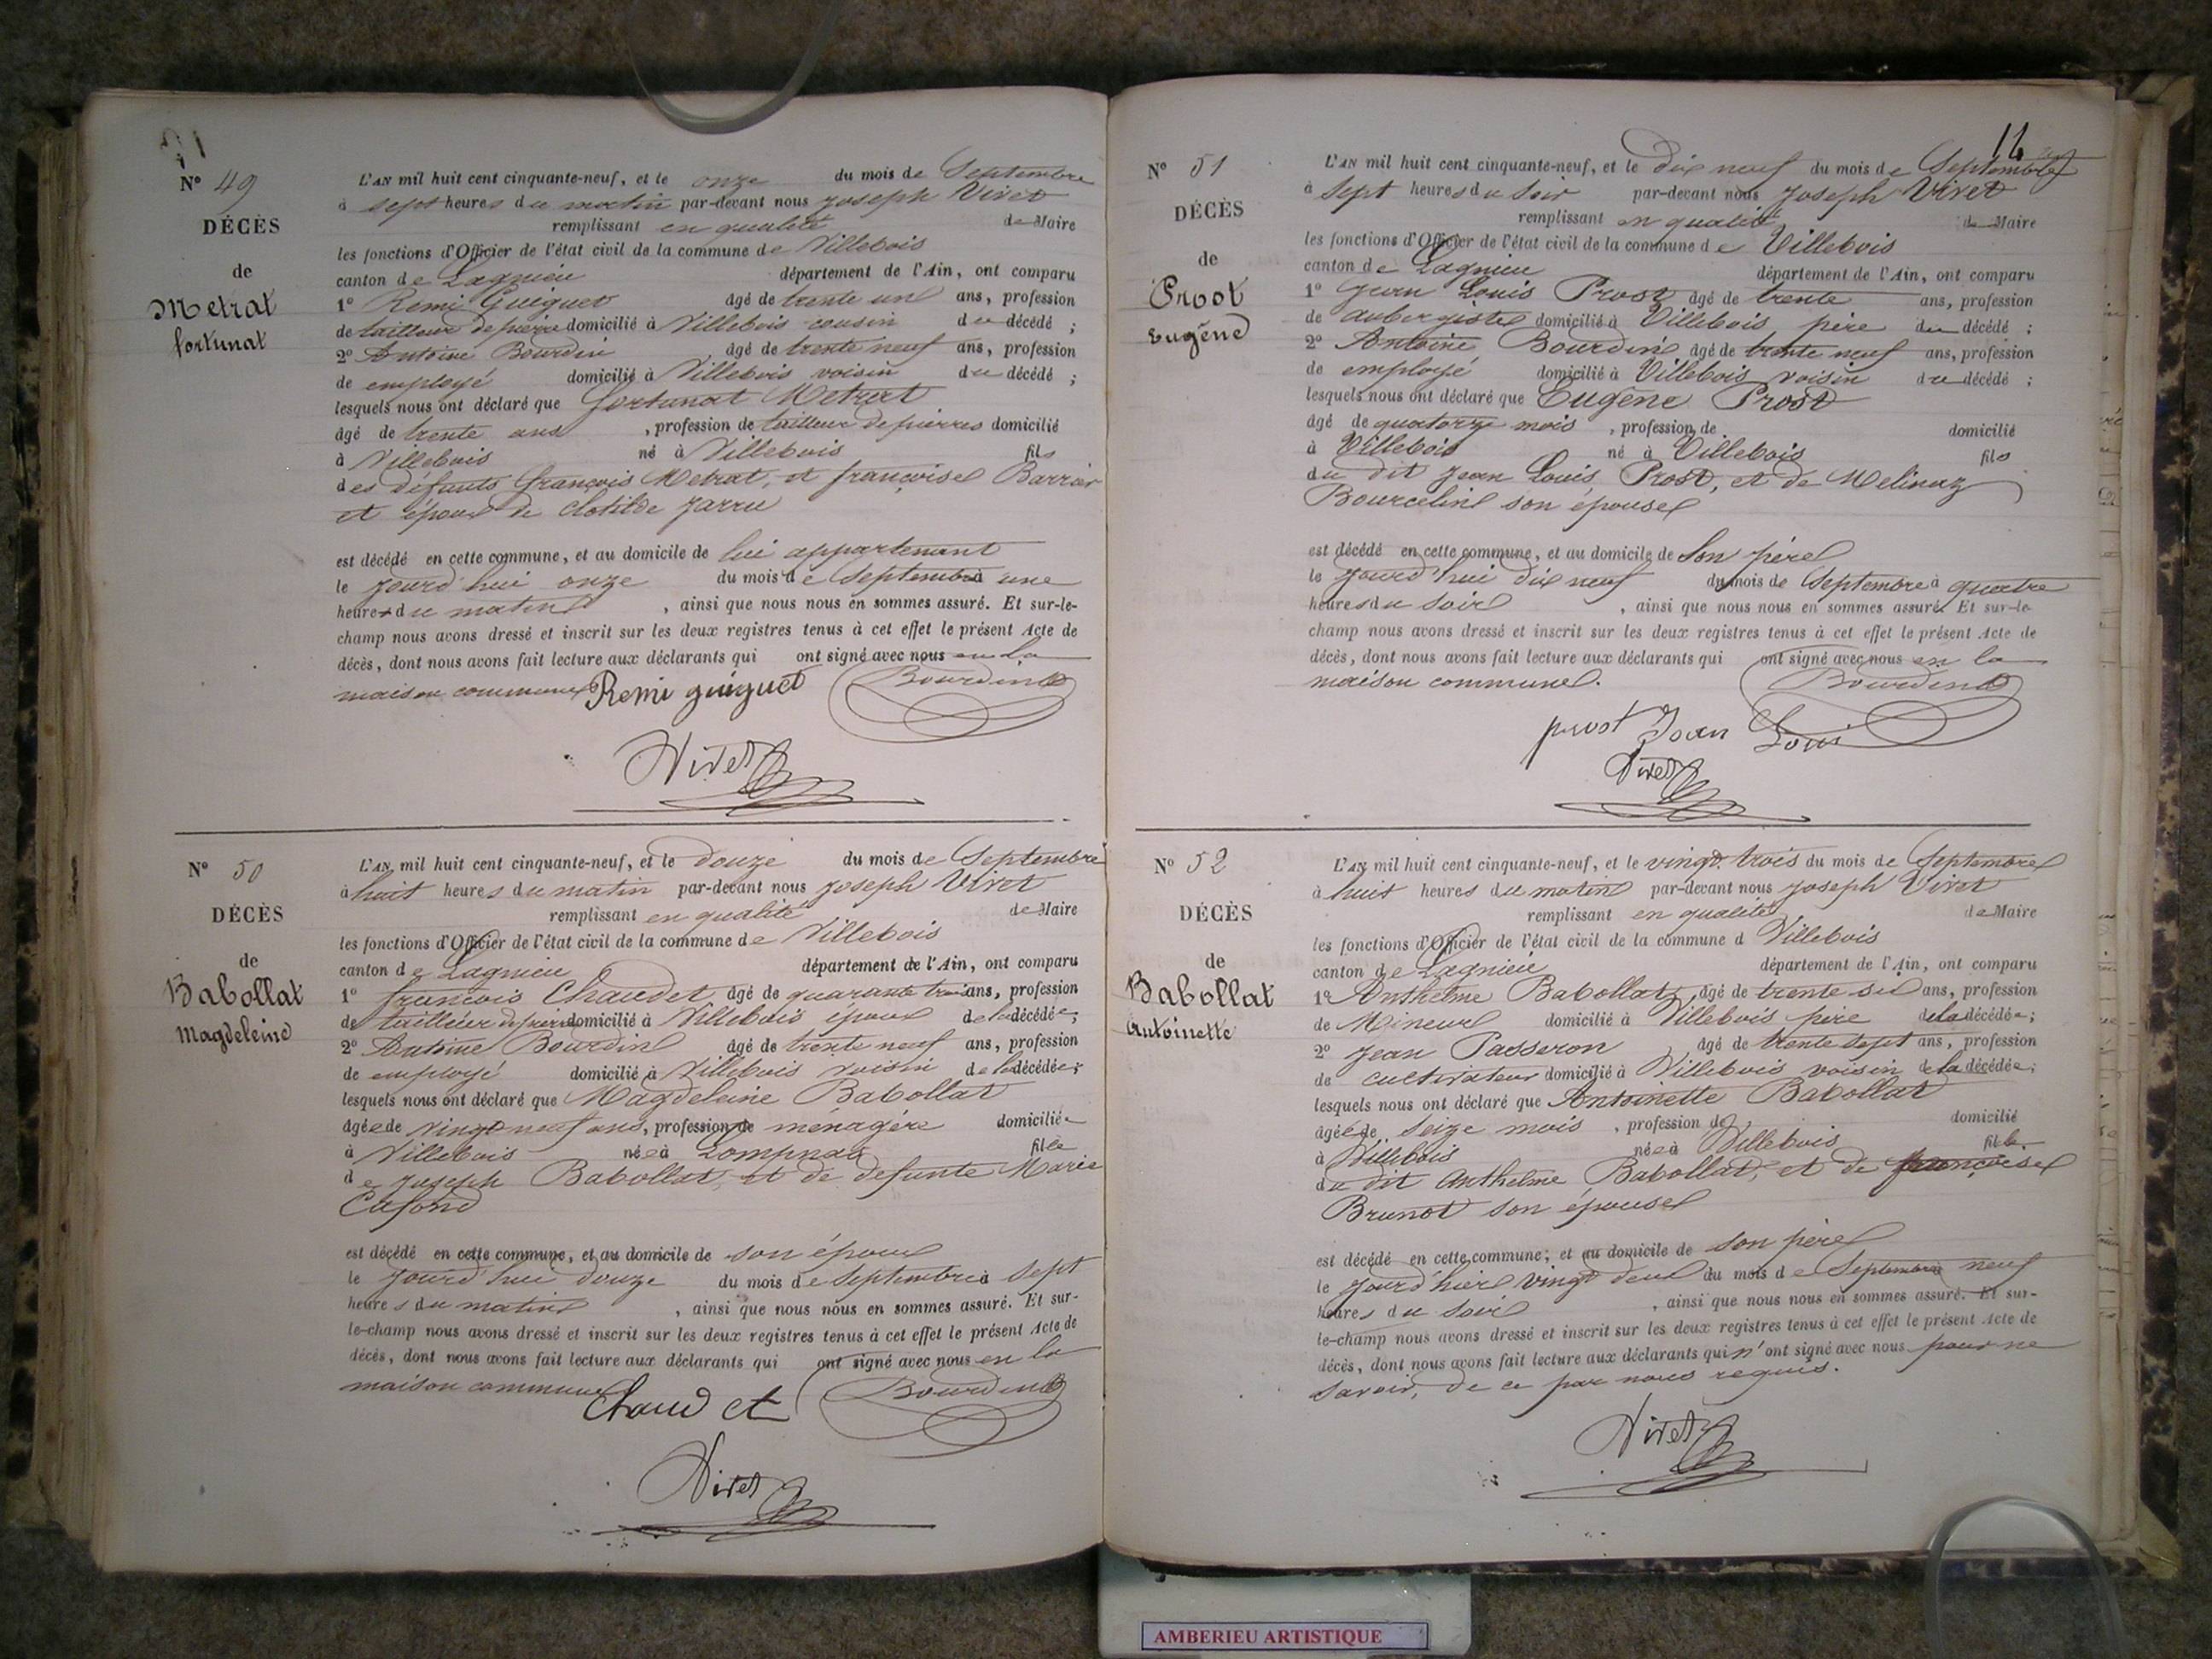 21
N° 49
DÉCÈS
de
Metrat
fortunat
L'AN mil huit cent cinquante-neuf, et le onze du mois de Septembre
à sept heures du matin par-devant nous Joseph Vivet
remplissant en qualité de Maire
les fonctions d'Officier de l'état civil de la commune de Villebois
canton de Lagnieu département de l'Ain, ont comparu
1° Remi Guiguet âgé de trente un ans, profession
de tailleur de pierre domicilié à Villebois cousin du décédé ;
2° Antoine Bourdin âgé de trente neuf ans, profession
de employé domicilié à Villebois voisin du décédé ;
lesquels nous ont déclaré que fortunat Metrat
âgé de trente ans, profession de tailleur de pierres domicilié
à Villebois né à Villebois fils
des défunts françois Metrat, et françoise Barrier
et époux de Clotilde Jarru
est décédé en cette commune, et au domicile de lui appartenant
le jourd'hui onze du mois de Septembre à une
heure du matin, ainsi que nous nous en sommes assuré. Et sur-le-
champ nous avons dressé et inscrit sur les deux registres tenus à cet effet le présent Acte de
décès, dont nous avons fait lecture aux déclarants qui ont signé avec nous en la
maison commune Remi guiguet Bourdin
Vivet
N° 50
DÉCÈS
de
Babollat
Magdeleine
L'AN mil huit cent cinquante-neuf, et le douze du mois de Septembre
à huit heures du matin par-devant nous Joseph Vivet
remplissant en qualité de Maire
les fonctions d'Officier de l'état civil de la commune de Villebois
canton de Lagnieu département de l'Ain, ont comparu
1° françois Chaudet âgé de quarante trois ans, profession
de tailleur de pierre domicilié à Villebois époux de la décédée ;
2° Antoine Bourdin âgé de trente neuf ans, profession
de employé domicilié à Villebois voisin de la décédée ;
lesquels nous ont déclaré que Magdeleine Babollat
âgée de vingt neuf ans, profession de ménagère domiciliée
à Villebois née à Lompnas fille
de Joseph Babollat, et de defunte Marie
Cafond
est décédé en cette commune, et au domicile de son époux
le jourd'hui douze du mois de Septembre à sept
heures du matin, ainsi que nous nous en sommes assuré. Et sur-
le-champ nous avons dressé et inscrit sur les deux registres tenus à cet effet le présent Acte de
décès, dont nous avons fait lecture aux déclarants qui ont signé avec nous en la
maison commune Chaudet Bourdin
Vivet
N° 51
DÉCÈS
de
Prost
Eugène
L'AN mil huit cent cinquante-neuf, et le dix neuf du mois de Septembre
à Sept heures du Soir par-devant nous Joseph Vivet
remplissant en qualité de Maire
les fonctions d'Officier de l'état civil de la commune de Villebois
canton de Lagnieu département de l'Ain, ont comparu
1° Jean Louis Prost âgé de trente ans, profession
de aubergiste domicilié à Villebois père du décédé ;
2° Antoine Bourdin âgé de trente neuf ans, profession
de employé domicilié à Villebois voisin du décédé ;
lesquels nous ont déclaré que Eugène Prost
âgé de quatorze mois, profession de domicilié
à Villebois né à Villebois fils
du dit Jean Louis Prost, et de Melinaz
Bourcelin son épouse
est décédé en cette commune, et au domicile de Son père
le jourd'hui dix neuf du mois de Septembre à quatre
heures du soir, ainsi que nous nous en sommes assuré. Et sur-le
champ nous avons dressé et inscrit sur les deux registres tenus à cet effet le présent Acte de
décès, dont nous avons fait lecture aux déclarants qui ont signé avec nous en la
maison commune. Bourdin
prost Jean Loui
Vivet
N° 52
DÉCÈS
de
Babollat
Antoinette
L'AN mil huit cent cinquante-neuf, et le vingt trois du mois de Septembre
à huit heures du matin par-devant nous Joseph Vivet
remplissant en qualité de Maire
les fonctions d'Officier de l'état civil de la commune d Villebois
canton de Lagnieu département de l'Ain, ont comparu
1° Anthelme Babollat, âgé de trente six ans, profession
de Mineur domicilié à Villebois père de la décédée ;
2° Jean Passeron âgé de trente Sept ans, profession
de cultivateur domicilié à Villebois voisin de la décédée ;
lesquels nous ont déclaré que Antoinette Babollat
âgée de Seize mois, profession de domicilié
à Villebois née à Villebois fille
du dit Anthelme Babollat, et de françoise
Brunot son épouse
est décédé en cette commune, et au domicile de son père
le jourd'hier vingt deux du mois de Septembre à neuf
heures du soir, ainsi que nous nous en sommes assuré. Et sur-
le-champ nous avons dressé et inscrit sur les deux registres tenus à cet effet le présent Acte de
décès, dont nous avons fait lecture aux déclarants qui n'ont signé avec nous pour ne
savoir, de ce par nous requis.
Vivet
AMBERIEU ARTISTIQUE